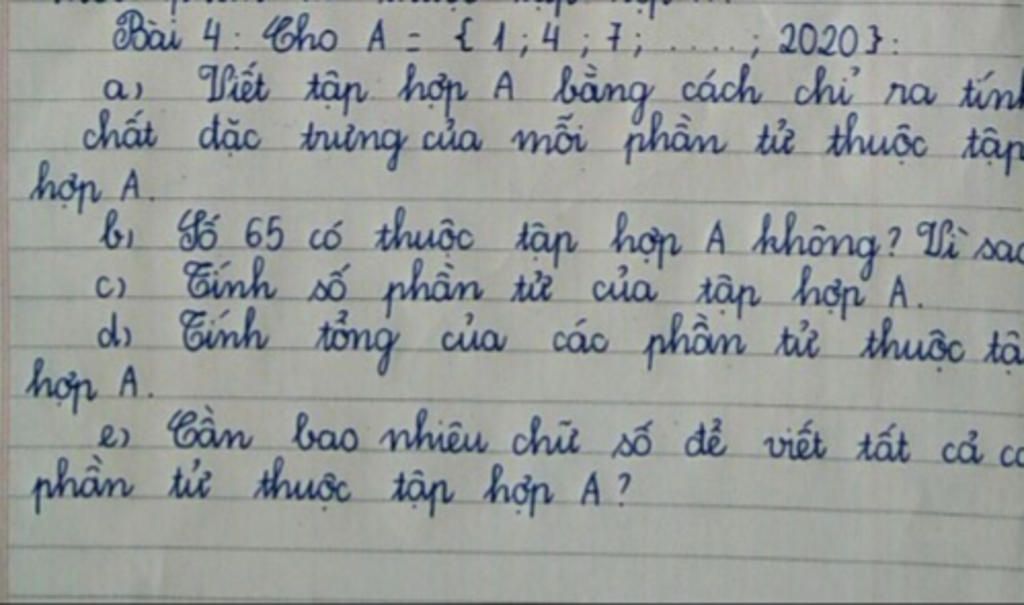 Bài 4 : Cho A = { 1 ; 4 ; 7 ; ....., ; 2020 } :
a) Viết tập hợp A bằng cách chỉ ra tính
chất đặc trưng của mỗi phần tử thuộc tập
hợp A.
b) Số 65 có thuộc tập hợp A không? Vì sao
c) Tính số phần tử của tập hợp A.
d) Tính tổng của các phần tử thuộc tậ
hợp A.
e) Cần bao nhiêu chữ số để viết tất cả cá
phần tử thuộc tập hợp A?